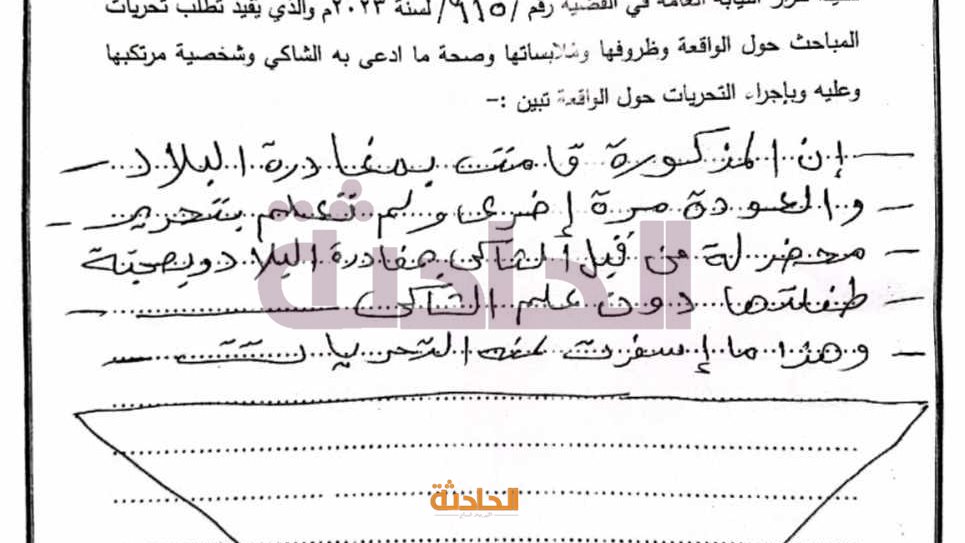 قرار النيابة العامة في القضية رقم /٩١١٥/ لسنة ٢٠٢٣م والذي يفيد تطلب تحريات
المباحث حول الواقعة وظروفها وملابساتها وصحة ما ادعى به الشاكي وشخصية مرتكبها
وعليه وبإجراء التحريات حول الواقعة تبين :-
– إن المذكورة قامت بمغادرة البلاد –
– والعودة مرة إخرى ولم تعلم بتحرير –
– محضر له من قبل الشاكي بمغادرة البلاد وبصحبة
– طفلتها دون علم الشاكي –
– وهذا ما إسفرت عنه التحريات –
الحادثة
الحادثة